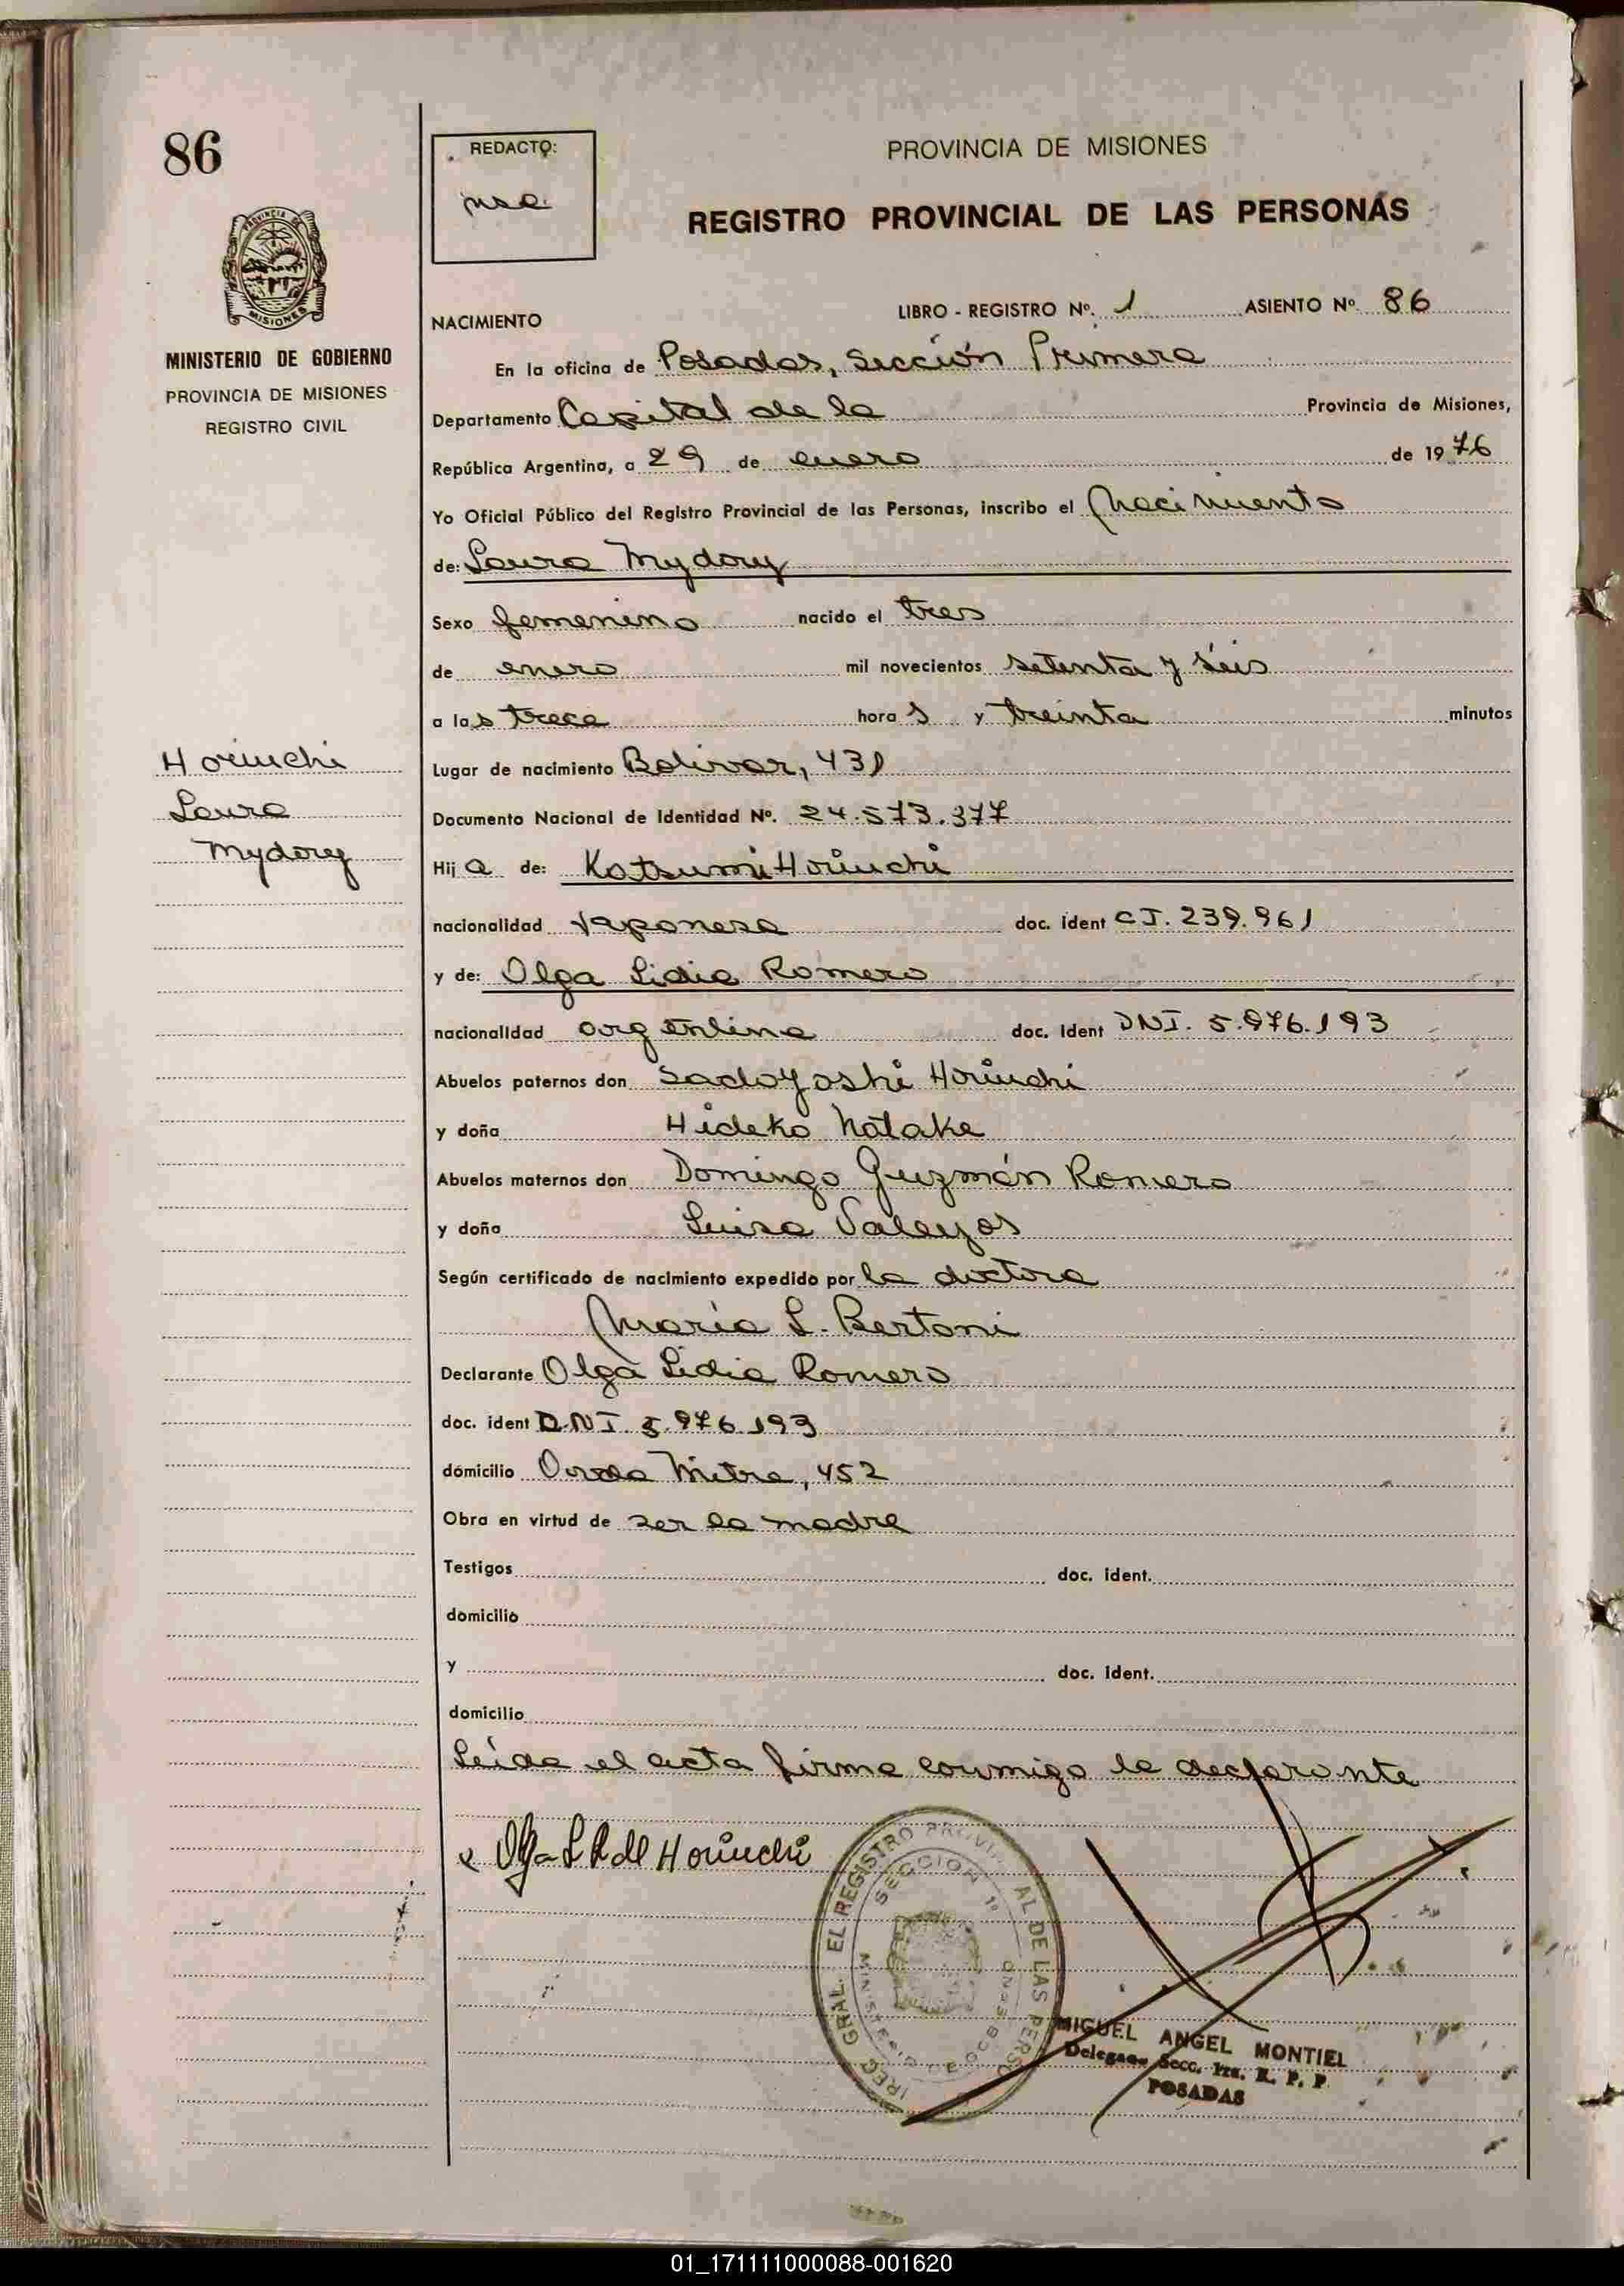 86
REDACTO:
PROVINCIA DE MISIONES
REGISTRO PROVINCIAL DE LAS PERSONAS
MINISTERIO DE GOBIERNO
PROVINCIA DE MISIONES
REGISTRO CIVIL
NACIMIENTO LIBRO - REGISTRO Nº. 1 ASIENTO Nº 86
En la oficina de Posadas, Sección Primera
Departamento Capital de la Provincia de Misiones,
República Argentina, a 29 de enero de 1976
Yo Oficial Público del Registro Provincial de las Personas, inscribo el Nacimiento
de: Laura Mydory
Sexo femenino nacido el tres
de enero mil novecientos setenta y seis
a las trece horas y treinta minutos
Horiuchi
Laura
Mydory
Lugar de nacimiento Bolivar, 431
Documento Nacional de Identidad Nº. 24.573.377
Hija de: Katsumi Horiuchi
nacionalidad japonesa doc. ident CI. 239.961
y de: Olga Lidia Romero
nacionalidad argentina doc. ident DNI. 5.976.193
Abuelos paternos don Sadoyoshi Horiuchi
y doña Hideko Natake
Abuelos maternos don Domingo Guzmán Romero
y doña Luisa Valeyos
Según certificado de nacimiento expedido por la doctora
María L. Bertoni
Declarante Olga Lidia Romero
doc. ident D.N.I. 5.976.193
domicilio Avda Mitre, 452
Obra en virtud de ser la madre
Testigos doc. ident.
domicilio
y doc. ident.
domicilio
Leída el acta firma conmigo la declarante
Olga L R de Horiuchi
MIGUEL ANGEL MONTIEL
Delegado Secc. 1ra. R. P. P.
POSADAS
01_171111000088-001620